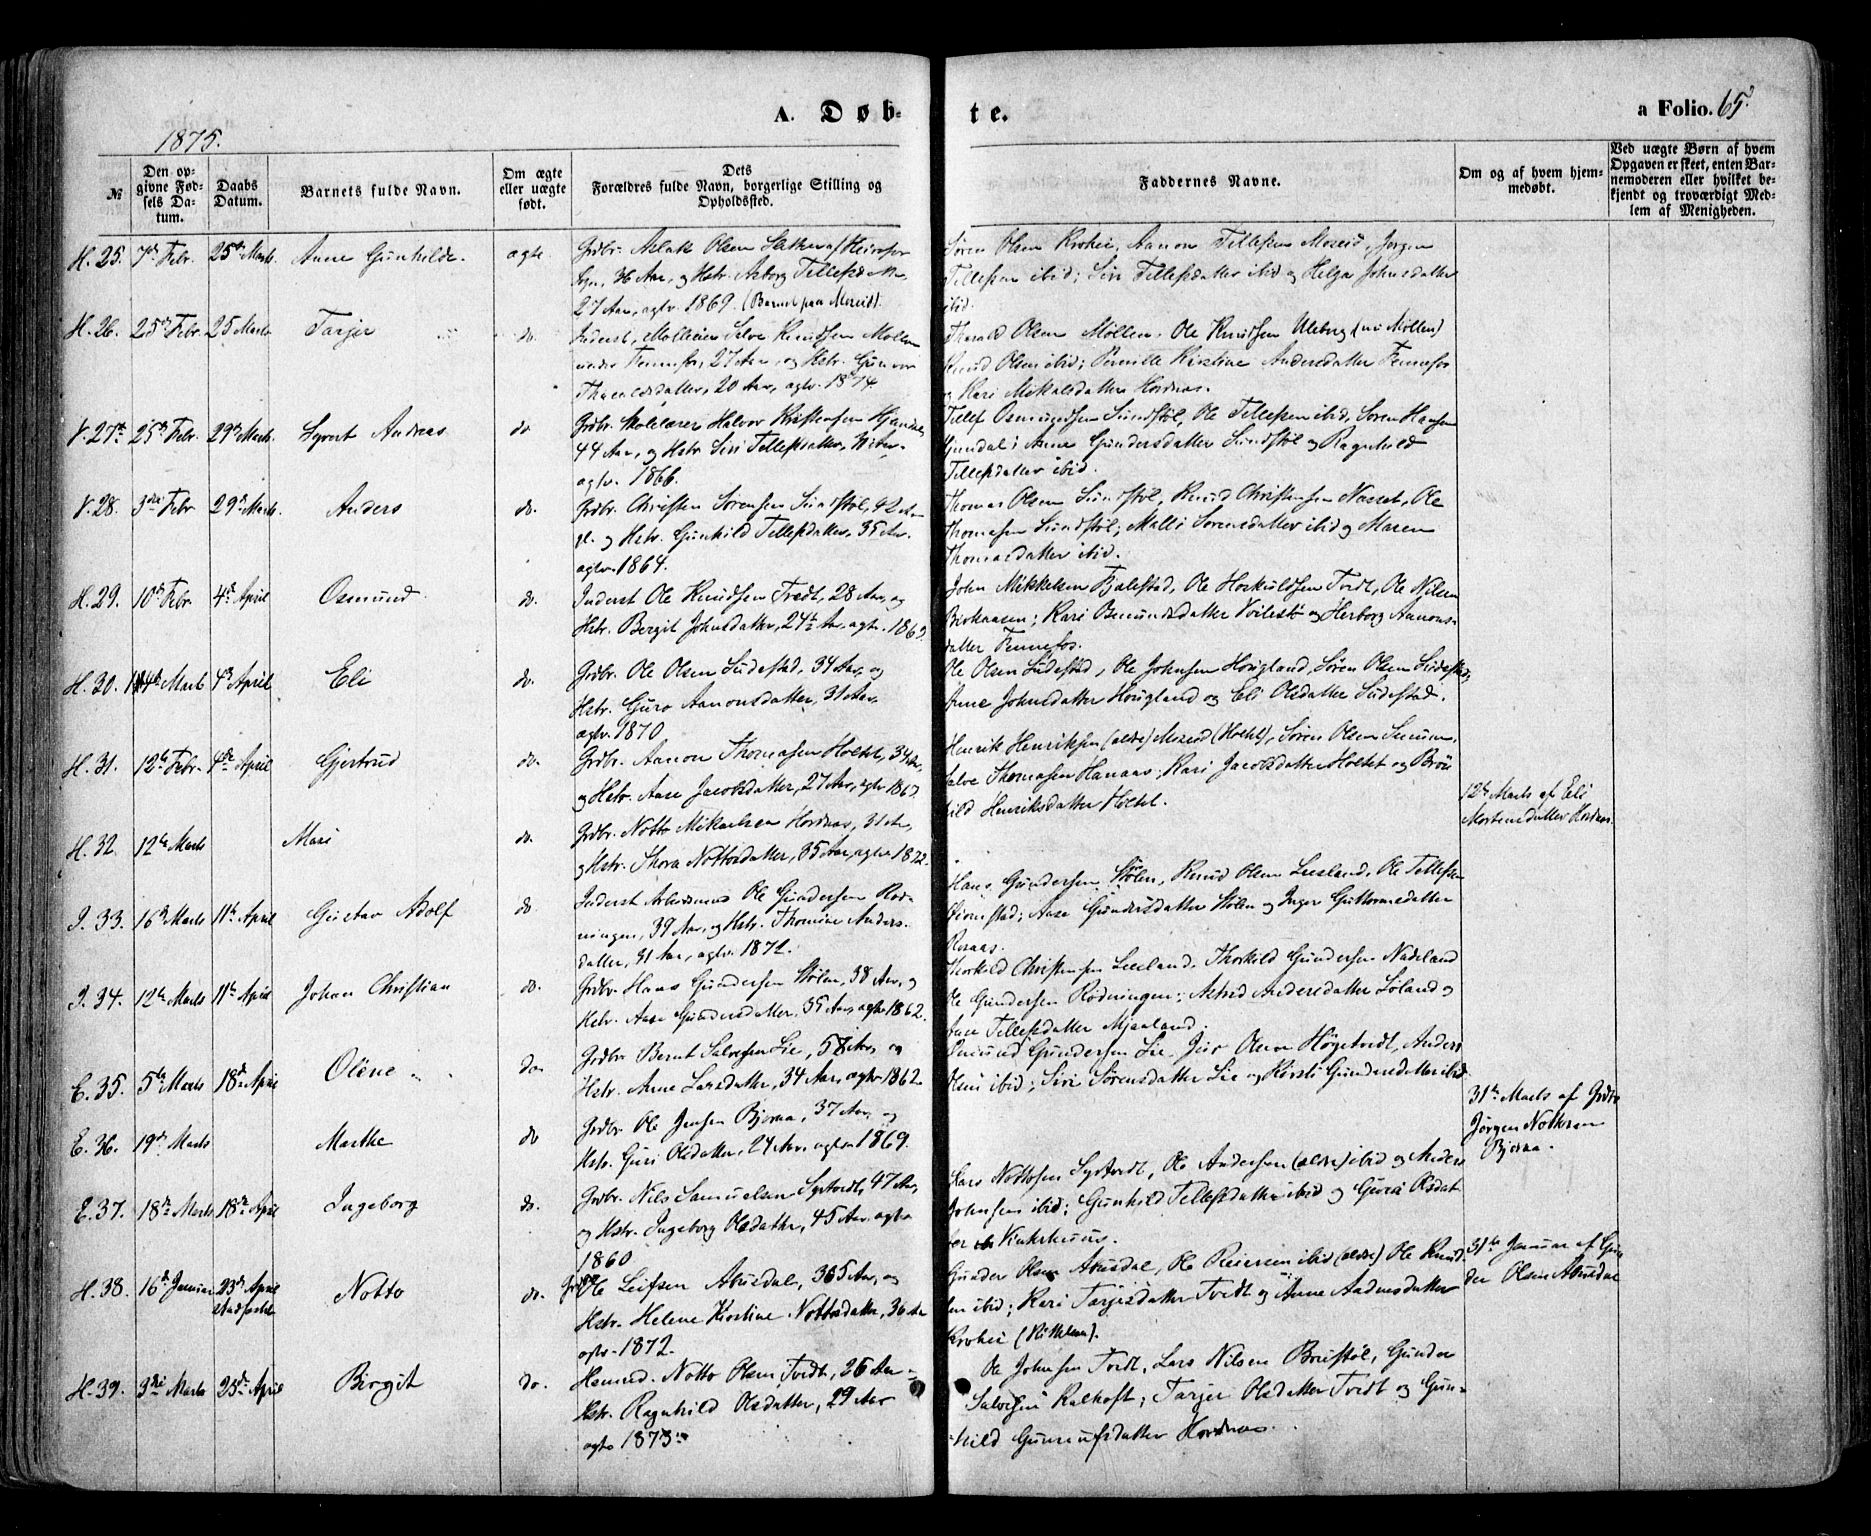 1875.
A. Døb-
te.
a Folio. 65.
№
Den op-
givne Fød-
sels Da-
tum.
Daabs
Datum.
Barnets fulde Navn.
Om ægte
eller uægte
født.
Dets
Forældres fulde Navn, borgerlige Stilling og
Opholdssted.
Faddernes Navne.
Om og af hvem hjem-
medøbt.
Ved uægte Børn af hvem
Opgaven er skeet, enten Bar-
nemoderen eller hvilket be-
kjendt og troværdigt Med-
lem af Menigheden.
H. 25. 7de Febr. 25de Marts Anne Gunhilde. ægte.
Grdbr. Aslak Olsen
Sogn, 36 Aar, og Hstr. Asborg Tellefsdatter,
27 Aar, agtv. 1869. (Barnet paa Moseid).
Søren Olsen Krohei, Aanon Tellefsen Moseid, Jørgen
Tellefsen ibid; Siri Tellefsdatter ibid og Helga Johnsdatter
ibid.
H. 26. 25de Febr. 25 Marts Tarjer do.
Inderst, Salve Knudsen Møllen
under Fennefos, 27 Aar, og Hstr. Gunvor
Tharaldsdatter, 20 Aar, agtv. 1874.
Tharald Olsen Møllen, Ole Knudsen Uleberg (nu Møllen)
Knud Olsen ibid; Pernille Kirstine Andersdatter Fennefos
og Kari Mikalsdatter Hordnæs.
V. 27de 25de Febr. 29de Marts. Syvert Andreas do
Grdbr. Skolelærer Halvor Kristensen
44 Aar, og Hstr. Siri Tellefsdatter,
agtv. 1866.
Tellef Osmundsen Sundstøl, Ole Tellefsen ibid, Søren Hansen
Anne Gundersdatter Sundstøl og Ragnhild
Tellefsdatter ibid.
V. 28. 3die Febr 29de Marts. Anders do.
Grdbr. Christen Sørensen Sundstøl, 42 Aar
gl. og Hstr. Gunhild Tellefsdatter, 35 Aar.
agtv. 1864.
Thomas Olsen Sundstøl, Knud Christensen Nasset, Ole
Thomasen Sundstøl; Malli Sørensdatter ibid og Maren
Thomasdatter ibid.
H. 29. 10de Febr. 4de April Osmund do.
Inderst Ole Knudsen Tvedt, 28 Aar, og
Hstr. Bergit Johnsdatter, 24 Aar, agtv. 186
John Mikkelsen Fjalestad, Ole Hoskuldsen Tvedt, Ole Nilsen
Birkaasen; Kari og Herborg Aanons-
datter Fennefos.
H. 30. 14de Marts 4de April Eli do.
Grdbr. Ole Olsen Sudestad, 34 Aar, og
Hstr. Guro Aanonsdatter, 31 Aar,
agtv. 1870.
Ole Olsen Sudestad, Ole Johnsen Hougland, Søren Olsen Sudestad,
Anne Johnsdatter Hougland og Eli Olsdatter Sudestad.
H. 31. 12te Febr. 4de April Gjertrud do.
Grdbr. Aanon Thomasen Holtet, 34 Aar,
og Hstr. Aase Jacobsdatter, 27 Aar, agtv 186
Henrik Henriksen (ældre) Moseid (Holtet), Søren Olsen
Salve Thomasen Hanaas; Kari Jacobsdatter Holtet og Brün
hild Henriksdatter Holtet.
H. 32. 12te Marts Mari do.
Grdbr. Notto Mikaelsen Hordnæs, 31 Aar,
og Hstr. Thora Nottosdatter, 35 Aar, agtv 1872.
12te Marts af Eli
Mortensdatter Hordnæs.
I. 33. 16de Marts 11te April Gustav Adolf do
Inderst Arbeidsmand Ole Gundersen Rød-
ningen, 39 Aar, og Hstr. Thomine Anders-
datter, 31 Aar, agtv. 1872.
Hans Gundersen Stølen, Knud Olsen Liesland, Ole Tellefsen
Aase Gundersdatter Stølen og Inger Guttormsdatter
Rosaas.
I. 34. 12te Marts 11te April Johan Christian do.
Grdbr. Hans Gundersen Stølen, 38 Aar, og
Hstr. Aase Gundersdatter, 35 Aar, agtv 1862.
Thorkild Christensen Liesland, Thorkild Gundersen Nadeland
Ole Gundersen Rødningen; Astrid Andersdatter Loland og
Aase Tellefsdatter Mjaaland.
E. 35. 5te Marts 18de April Oline do
Grdbr. Bernt Salvesen Lie, 58 Aar, og
Hstr. Anne Larsdatter, 34 Aar, agtv 1862.
Omund Gundersen Lie, Jens Olsen Høgetvedt, Anders
Olsen ibid; Siri Sørensdatter Lie og Kirsti Gundersdatter ibid.
E. 36. 19de Marts Marthe do
Grdbr Ole Jensen Bjoraa, 37 Aar, og
Hstr. Guri Olsdatter, 24 Aar, agtv 1869.
31te Marts af Grdbr
Jørgen Nottosen
Bjoraa.
E. 37. 18de Marts 18de April Ingeborg do.
Grdbr. Nils Samuelsen Systvedt, 47 Aar,
og Hstr. Ingeborg Olsdatter, 45 Aar, agtv
1860
Lars Nottosen Systvedt, Ole Andersen (ældre) ibid og Anders
Johnsen ibid; Gunhild Tellefsdatter ibid og Guroe Olsdat
ter
H. 38. 16de Januar 23de April
stadfæstet Notto do.
Grdbr Ole Leifsen Abusdal, 36 Aar, og
Hstr. Helene Kirstine Nottosdatter, 36 Aar
agtv. 1872.
Gunder Olsen Abusdal, Ole Reiersen ibid (ældre) Ole Knud
sen ibid; Kari Tarjeisdatter Tvedt og Anne Aadnesdatter
Krohei
31te Januar af Gun
der Olsen Abusdal
H. 39. 3die Marts 23de April Birgit do.
Husmd. Notto Olsen Tvedt, 26 Aar
Hstr. Ragnhild Olsdatter, 29 Aar
agtv 1873.
Ole Johnsen Tvedt, Lars Nilsen Bruistøl, Gunder
Salvesen Kalhoft; Tarjer Olsdatter Tvedt og Gun-
hild Gunnufsdatter Hordnæs.